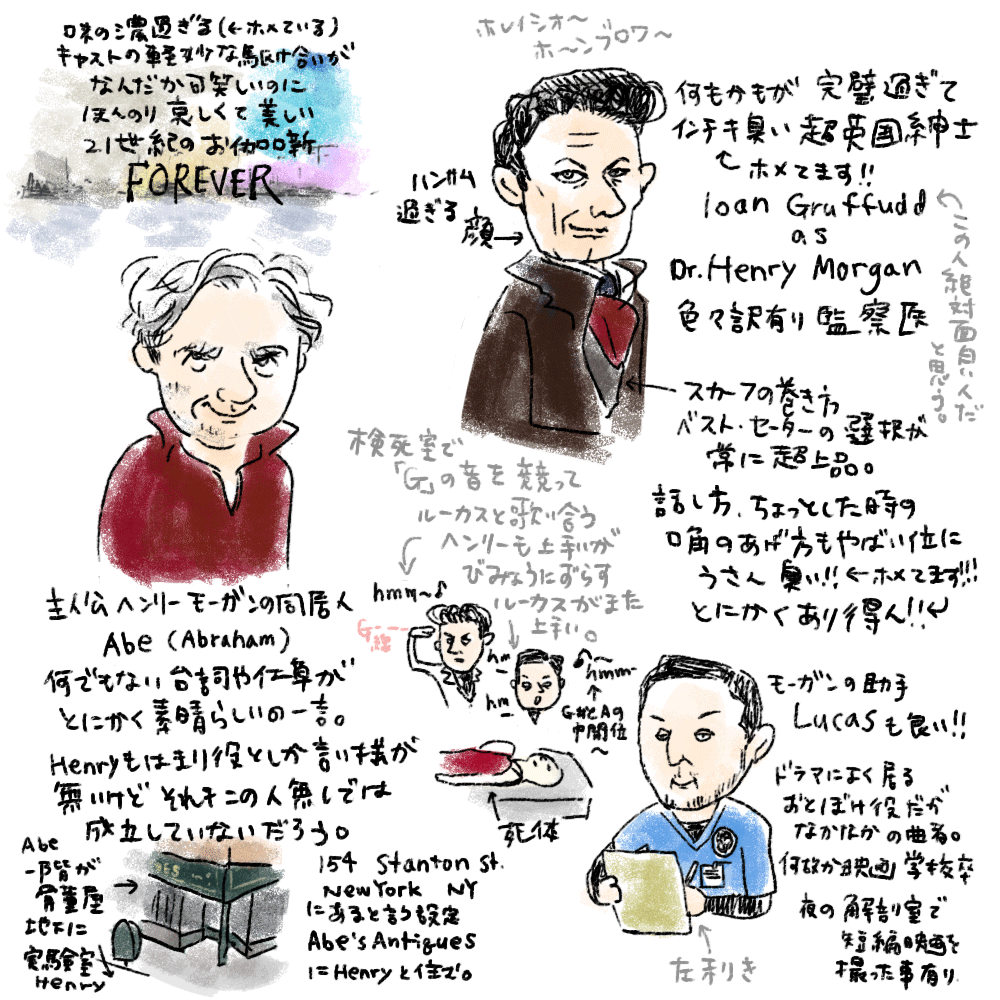 味の濃過ぎる(←ホメている)
キャストの軽妙な駆け合いが
なんだか可笑しいのに
ほんのり哀しくて美しい
21世紀のお伽噺
FOREVER
ホレイシオ〜
ホ〜ンブロワ〜
何もかもが完璧過ぎて
インチキ臭い超英国紳士
ホメてます!!
Ioan Gruffudd
as
Dr. Henry Morgan
色々訳有り監察医
この人絶対面白い人だ
と思う。
ハンサム
過ぎる
顔→
スカーフの巻き方
ベスト・セーターの選択が
常に超上品。
話し方、ちょっとした時の
口角のあげ方もやばい位に
うさん臭い!!←ホメてます!!!
とにかくあり得ん!!
検死室で
「G」の音を競って
ルーカスと歌い合う
ヘンリーも上手いが
びみょうにずらす
ルーカスがまた
上手い。
hmm〜♪
G
hm
hm
hmm
G#とAの
中間位
〜
死体
主人公ヘンリーモーガンの同居人
Abe (Abraham)
何でもない台詞や仕草が
とにかく素晴らしいの一言。
Henryもはまり役としか言い様が
無いけどそれもこの人無しでは
成立していないだろう。
Abe
一階が
骨董屋
地下に
実験室
Henry
154 Stanton St.
New York NY
にあると言う設定
Abe's Antigues
にHenryと住む。
モーガンの助手
Lucasも良い!!
ドラマによく居る
おとぼけ役だが
なかなかの曲者。
何故か映画学校卒
夜の解剖室で
短編映画を
撮った事有り
左利き